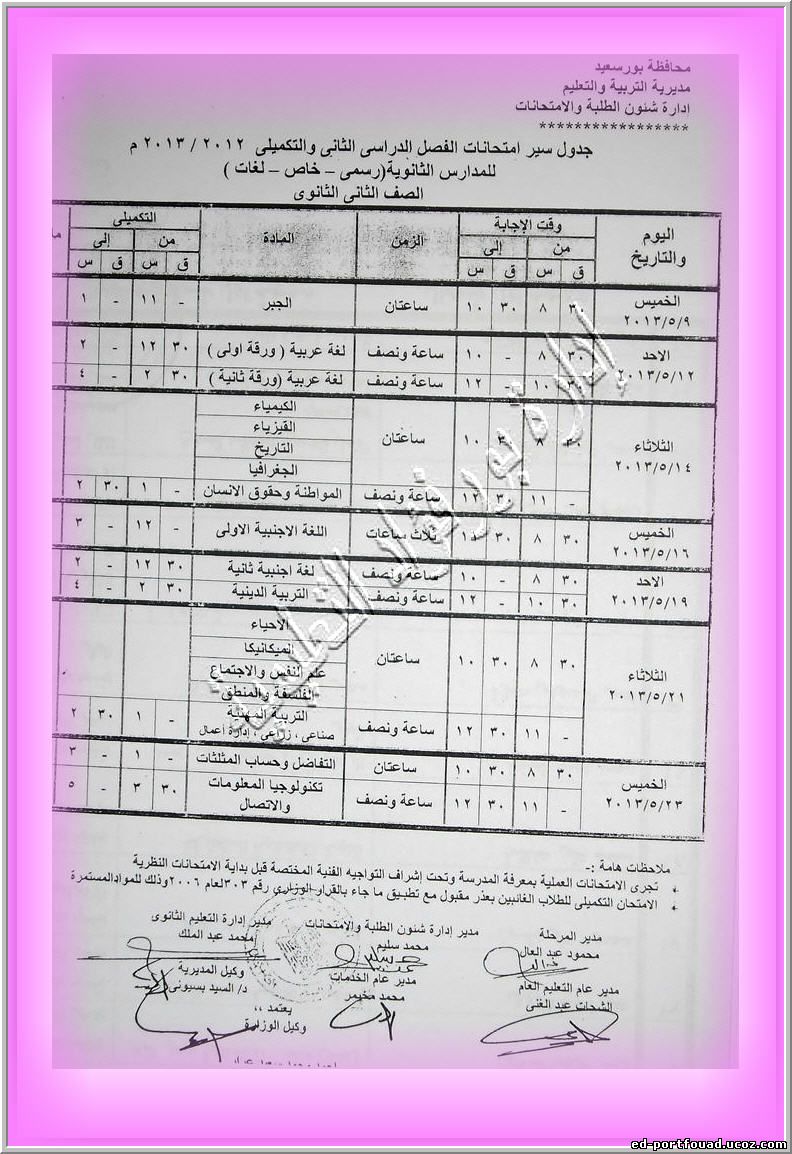 محافظة بورسعيد
مديرية التربية والتعليم
إدارة شئون الطلبة والامتحانات
*****************
جدول سير امتحانات الفصل الدراسى الثانى والتكميلى ٢٠١٢ / ٢٠١٣ م
للمدارس الثانوية(رسمى – خاص – لغات )
الصف الثانى الثانوى
اليوم والتاريخ وقت الإجابة الزمن المادة التكميلى
من إلى من إلى
ق س ق س ق س ق س
الخميس ٢٠١٣/٥/٩ ٣٠ ٨ ٣٠ ١٠ ساعتان الجبر - ١١ - ١
الاحد ٢٠١٣/٥/١٢ ٣٠ ٨ - ١٠ ساعة ونصف لغة عربية ( ورقة اولى ) ٣٠ ١٢ - ٢
٣٠ ١٠ - ١٢ ساعة ونصف لغة عربية (ورقة ثانية ) ٣٠ ٢ - ٤
الثلاثاء ٢٠١٣/٥/١٤ ٣٠ ٨ ٣٠ ١٠ ساعتان الكيمياء
الفيزياء
التاريخ
الجغرافيا
- ١١ ٣٠ ١٢ ساعة ونصف المواطنة وحقوق الانسان - ١ ٣٠ ٢
الخميس ٢٠١٣/٥/١٦ ٣٠ ٨ ٣٠ ١١ ثلاث ساعات اللغة الاجنبية الاولى - ١٢ - ٣
الاحد ٢٠١٣/٥/١٩ ٣٠ ٨ - ١٠ ساعة ونصف لغة اجنبية ثانية ٣٠ ١٢ - ٢
٣٠ ١٠ - ١٢ ساعة ونصف التربية الدينية ٣٠ ٢ - ٤
الثلاثاء ٢٠١٣/٥/٢١ ٣٠ ٨ ٣٠ ١٠ ساعتان الاحياء
الميكانيكا
علم النفس والاجتماع
الفلسفة والمنطق
- ١١ ٣٠ ١٢ ساعة ونصف التربية المهنية - ١ ٣٠ ٢
صناعى ، زراعى ، إدارة أعمال
الخميس ٢٠١٣/٥/٢٣ ٣٠ ٨ ٣٠ ١٠ ساعتان التفاضل وحساب المثلثات - ١ - ٣
- ١١ ٣٠ ١٢ ساعة ونصف تكنولوجيا المعلومات والاتصال ٣٠ ٣ - ٥
إدارة بورفؤاد التعليمية
ملاحظات هامة :-
تجرى الامتحانات العملية بمعرفة المدرسة وتحت إشراف التواجيه الفنية المختصة قبل بداية الامتحانات النظرية
الامتحان التكميلى للطلاب الغائبين بعذر مقبول مع تطبيق ما جاء بالقرار الوزارى رقم ٣٠٣لعام ٢٠٠٦وذلك للموادالمستمرة
مدير المرحلة مدير إدارة شئون الطلبة والامتحانات مدير إدارة التعليم الثانوى
محمود عبد العال محمد سليم محمد عبد الملك
مدير عام التعليم العام مدير عام الخدمات وكيل المديرية
الشحات عبد الغنى محمد مخيمر د/ السيد بسيونى
يعتمد ،،
وكيل الوزارة
ed-portfouad.ucoz.com